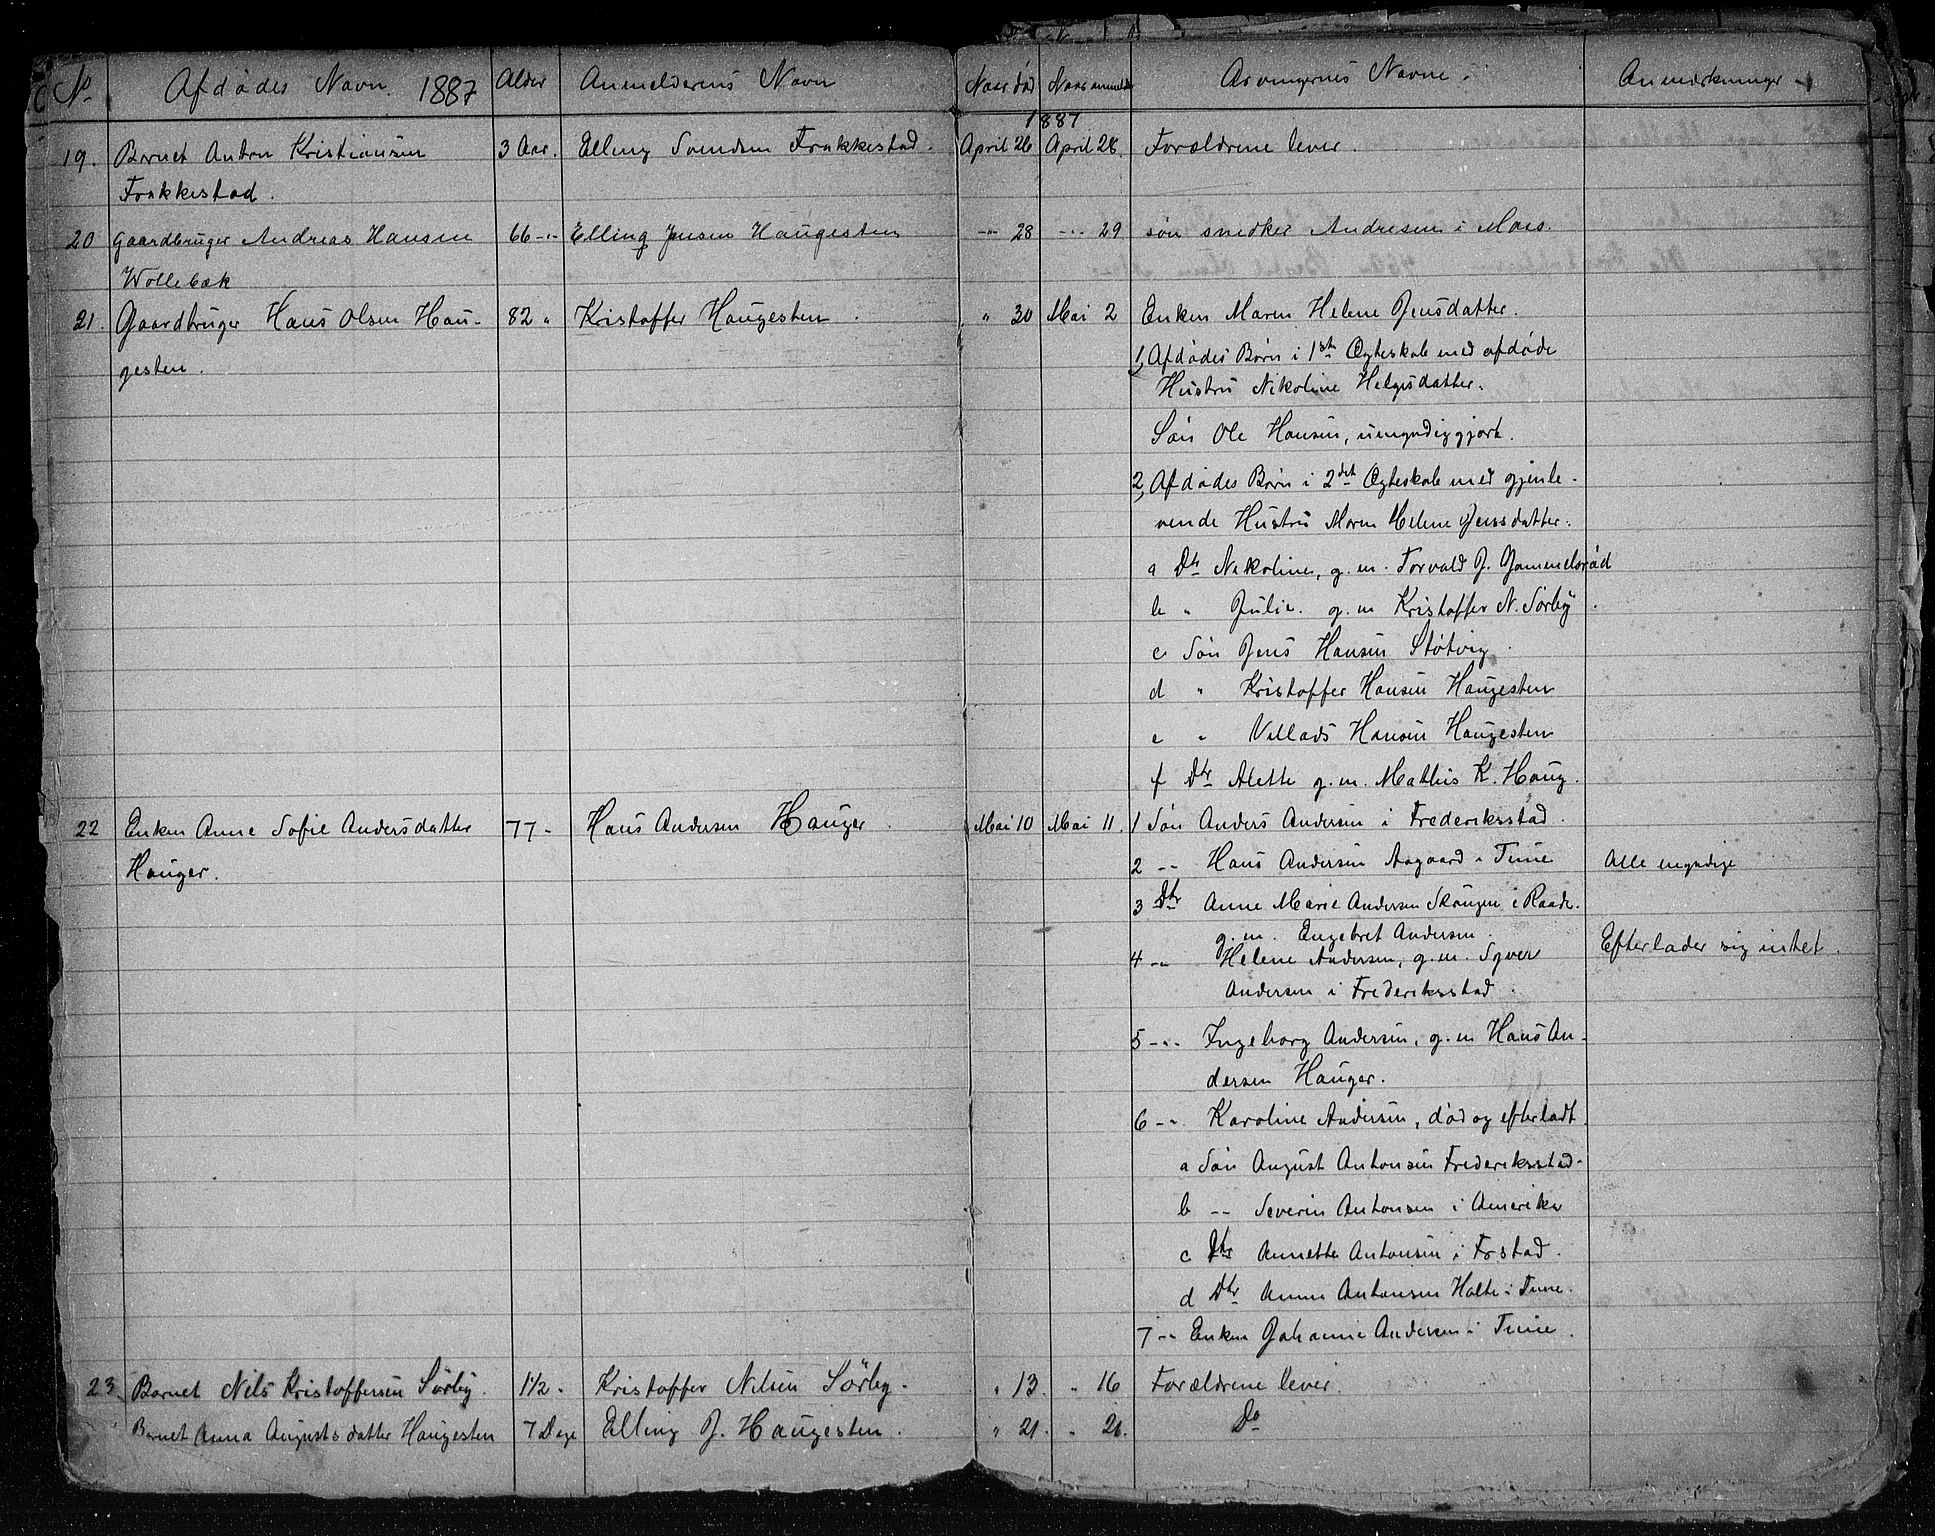 No. Afdødes Navn. 1887 Alder Anmelderens Navn Naar død Naar anmeldt Arvingernes Navne. Anmærkninger
1887
19. Barnet Anton Kristiansen 3 Aar. Elling Svendsen Frakkestad. April 26 April 28. Forældrene lever.
Frakkestad.
20 Gaardbruger Andreas Hansen 66 -"- Elling Jensen Haugesten -"- 28 -"- 29 søn snedker Andresen i Moss.
Wollebæk
21. Gaardbruger Hans Olsen Hau- 82 " Kristoffer Haugesten. " 30 Mai 2 Enken Maren Helene Jensdatter.
gesten.
1, Afdødes Børn i 1ste Ægteskab med afdøde
Hustru Nikoline Helgesdatter.
Søn Ole Hansen, umyndiggjort.
2, Afdødes Børn i 2det Ægteskab med gjenle-
vende Hustru Maren Helene Jensdatter.
a Dtr Nikoline, g. m. Torvald J. Gammelsrød
b " Julie. g. m Kristoffer N. Sørby.
c Søn Jens Hansen Støtvig.
d " Kristoffer Hansen Haugesten
e " Villads Hansen Haugesten
f Dtr Alette g. m. Mathis K. Haug.
22 Enken Anne Sofie Andersdatter 77 - Hans Andersen Hauger. Mai 10 Mai 11. 1 Søn Anders Andersen i Frederiksstad.
Hauger.
2 -"- Hans Andersen Aagaard i Tune Alle myndige
3 Dtr Anne Marie Andersen Skougen i Raade.
g. m. Engebret Andersen.
4 -"- Helene Andersen, g. m. Syver Efterlader sig intet.
Andersen i Frederiksstad.
5 -"- Ingeborg Andersen, g. m Hans An-
dersen Hauger.
6 -"- Karoline Andersen, død og efterladt.
a Søn August Antonsen Frederiksstad-
b -"- Severin Antonsen i Amerika
c Dtr Annette Antonsen i Frstad.
d Dtr Anna Antonsen Holte i Tune.
7 -"- Enken Johanne Andersen i Tune.
23. Barnet Nils Kristoffersen Sørby. 1½ - Kristoffer Nilsen Sørby. " 13. " 16 Forældrene lever.
Barnet Anna Augustsdatter Haugesten 7 Dage Elling J. Haugesten. " 21. " 21. Do